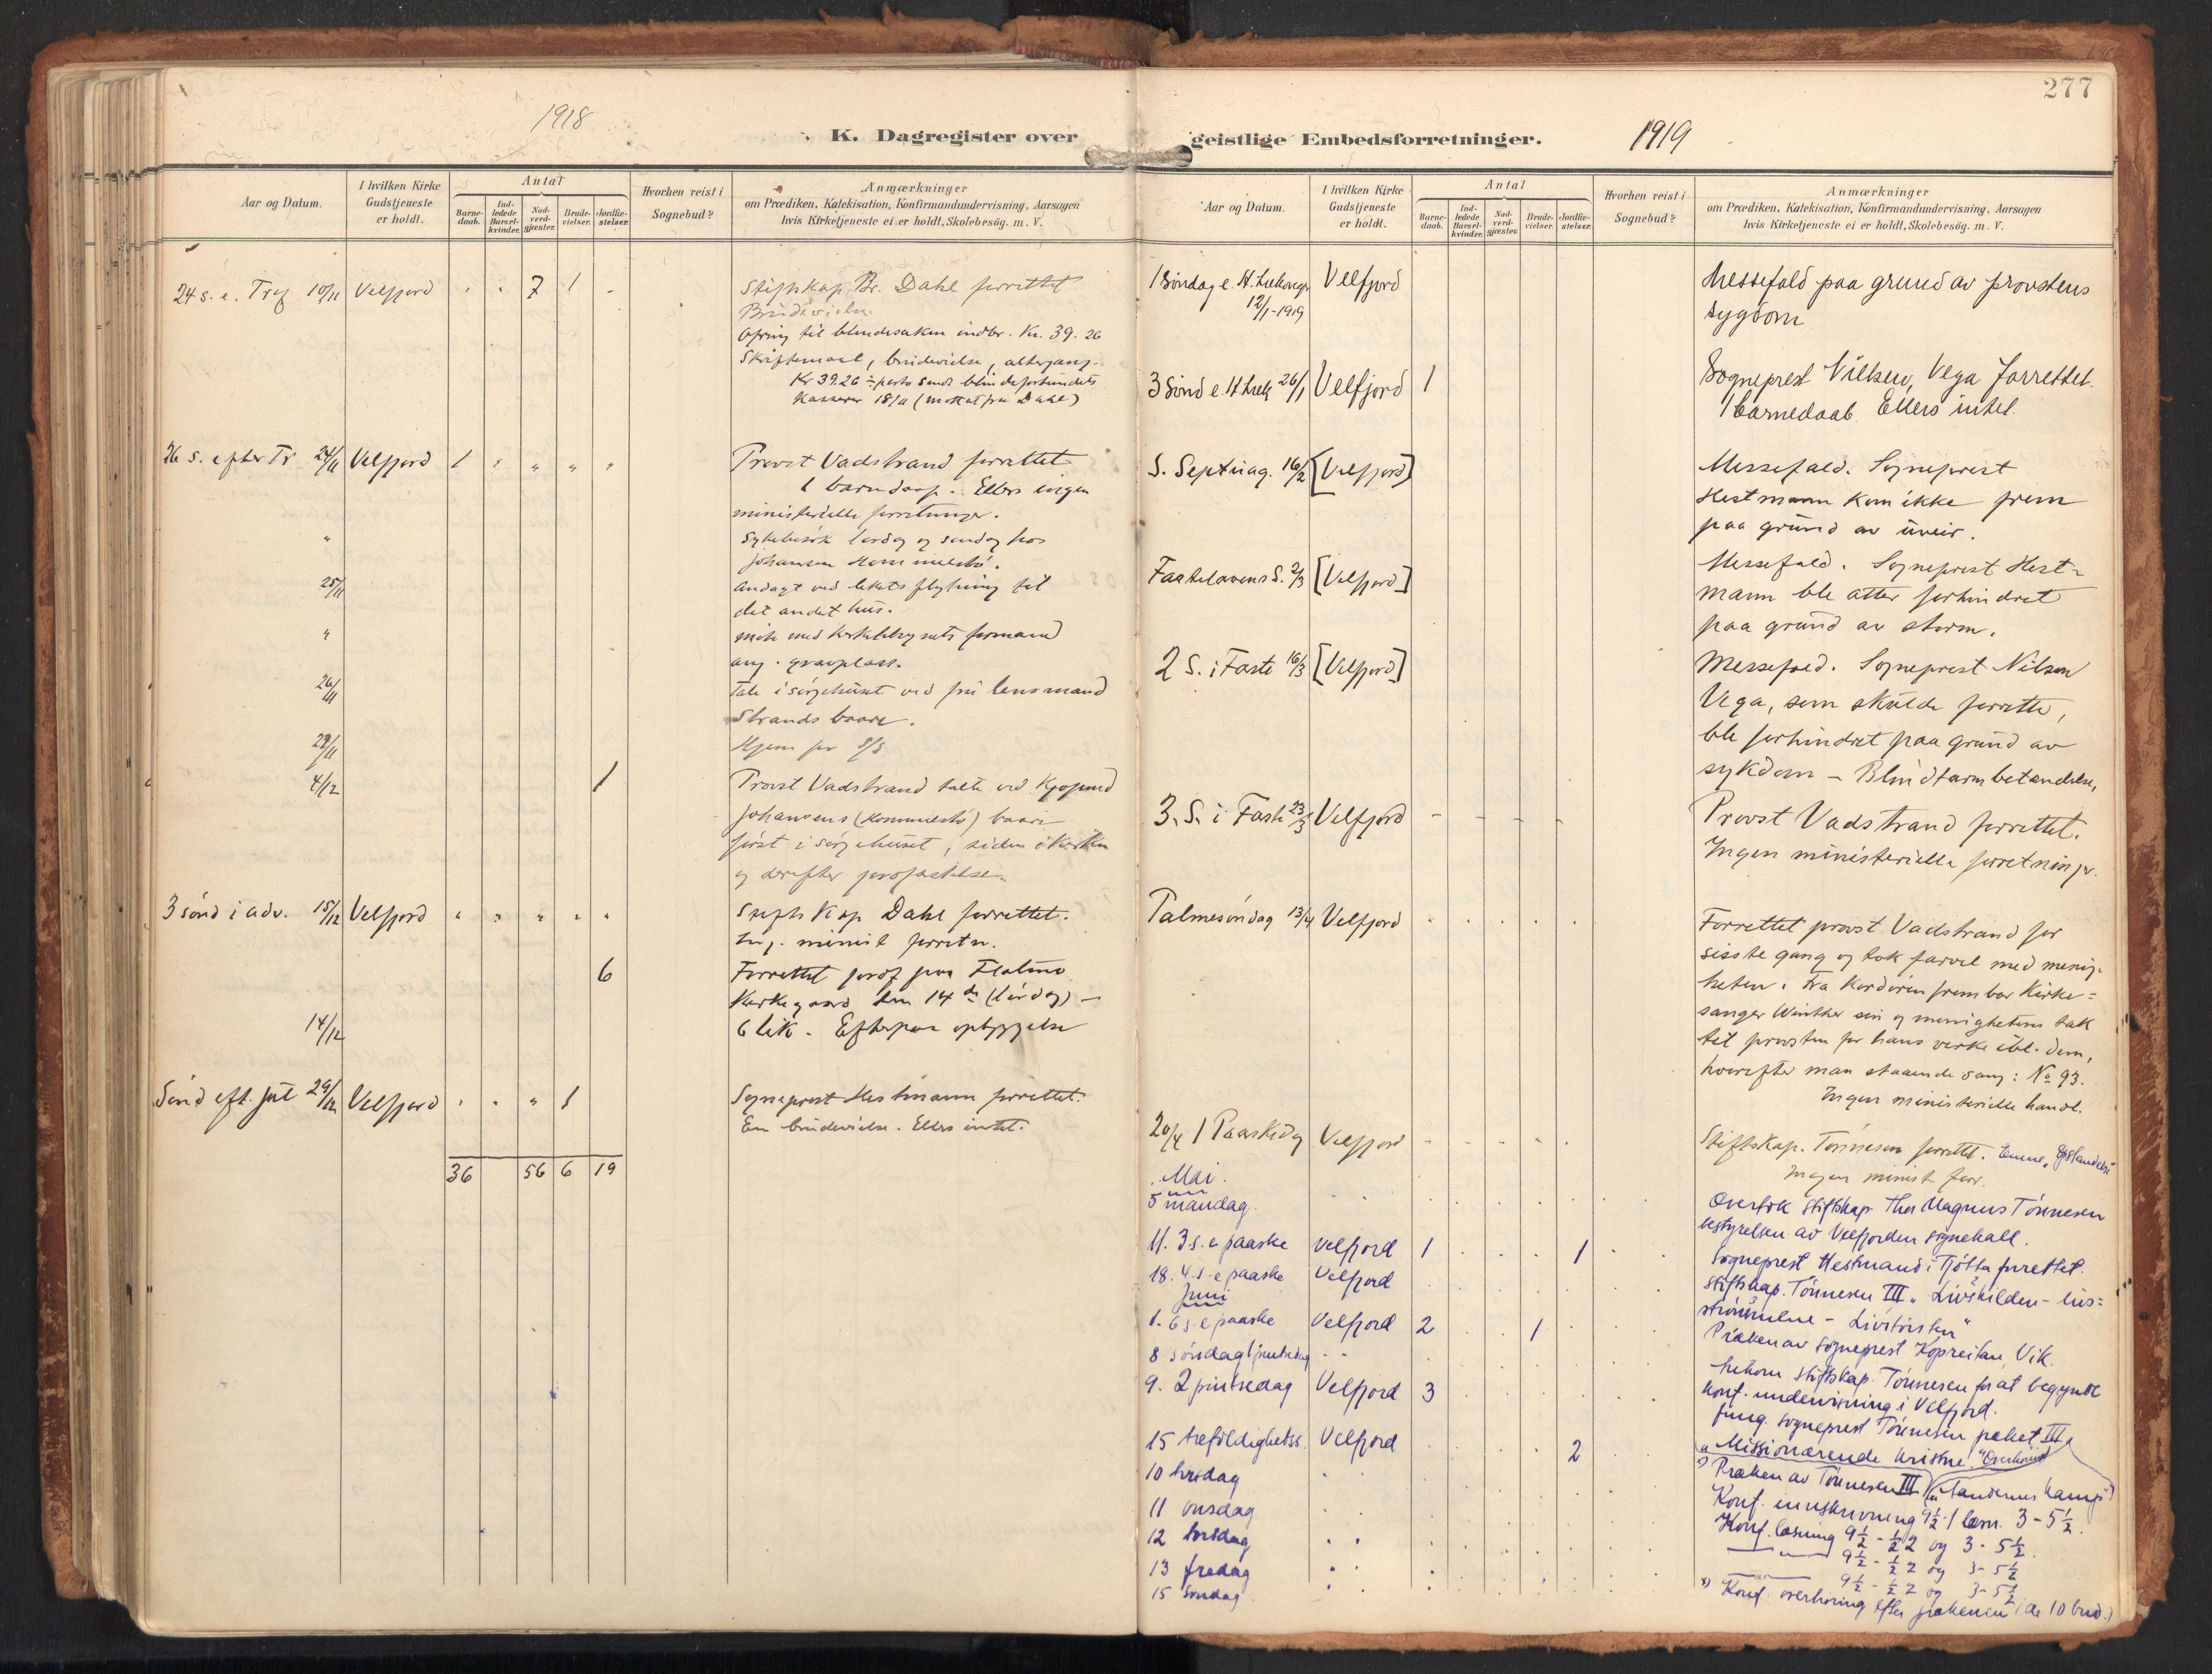 1918
K. Dagregister over
Aar og Datum.
I hvilken Kirke Gudstjeneste er holdt.
Antal
Barnedaab.
Indledede Barselkvinder.
Nadverdgjæster.
Brudevielser.
Jordfæstelser.
Hvorhen reist i Sognebud?
Anmærkninger
om Prædiken, Katekisation, Konfirmandundervisning, Aarsagen
hvis Kirketjeneste ei er holdt, Skolebesög. m. V.
24 s. e. Tref 10/11 Velfjord " " 7 1 "
Stiftskap. Br. Dahl forrettet
Brudevielse
Ofring til blindesaken indbr. Kr. 39.26
Skriftemaal, brudevielse, altergang.
Kr 39.26 ÷ porto sendt blindeforbundets
Kasserer 18/11 (mottat fra Dahl)
26 s. efter Tr 24/11 Velfjord 1 " " " "
Provst Vadstrand forrettet
1 barnedaap. Ellers ingen
ministerielle forretninger.
"
Sykebesøk lørdag og søndag hos
Johansen
25/11
Andagt ved likets flytning til
det andet hus.
"
Møte med kirketilsynets formand
ang. gravplass.
26/11
Tale i sørgehuset ved fru lensmand
Strands baare.
28/11
Hjem per S/S
4/12 1
Provst Vadstrand talte ved Kjøpmd
Johansens baare
først i sørgehuset, siden i Kirken
og derefter jordfæstelse.
3 sønd i adv. 15/12 Velfjord " " " " "
Stifts Kap Dahl forrettet.
Ing. minist forretn.
6
Forrettet jordf paa
Kirkegaard den 14de (Lørdag) -
14/12
6 lik. Efterpaa opbyggelse
Sønd eft. jul 29/12 Velfjord " " " 1
Sogneprest Hestmann forrettet.
En brudevielse. Ellers intet.
36 56 6 19
277
geistlige Embedsforretninger.
1919
Aar og Datum.
I hvilken Kirke Gudstjeneste er holdt.
Antal
Barnedaab.
Indledede Barselkvinder.
Nadverdgjæster.
Brudevielser.
Jordfæstelser.
Hvorhen reist i Sognebud?
Anmærkninger
om Prædiken, Katekisation, Konfirmandundervisning, Aarsagen
hvis Kirketjeneste ei er holdt, Skolebesög. m. V.
1 Søndag e. H. trekonger Velfjord
12/1-1919
Messefald paa grund av provstens
sygdom
3 Sønd e. H. trek 26/1 Velfjord 1
Sogneprest Nielsen, Vega forrettet.
1 barnedaab. Ellers intet.
S. Septuag. 16/2 [Velfjord]
Messefald. Sogneprest
Hestmann kom ikke frem
paa grund av uveir.
Fastelavens S. 2/3 [Velfjord]
Messefald. Sogneprest Hest-
mann ble atter forhindret
paa grund av storm.
2 S. i Faste 16/3 [Velfjord]
Messefald. Sogneprest Nilsen
Vega, som skulde forrette,
ble forhindret paa grund av
sykdom - Blindtarmbetændelse.
3. S. i Faste 23/3 Velfjord - - - -
Provst Vadstrand forrettet.
Ingen ministerielle forretninger.
Palmesøndag 13/4 Velfjord " " " " "
Forrettet provst Vadstrand for
siste gang og tok farvel med menig-
heten. Fra Kordøren frembar Kirke-
sanger Winther sin og menighetens tak
til provsten for hans verke ibl. dem,
hvorefter man staaende sang: No 93.
Ingen ministerielle handl.
20/4 1 Paaskedag Velfjord - - - - -
Stiftskap. Tønnesen forrettet. Emne,
Ingen minist. forr.
Mai.
5 mandag.
Overtok stiftskap. Thor Magnus Tønnesen
bestyrelsen av Velfjorden sognekall.
11. 3. s. e paaske Velfjord 1 . . . 1
Sogneprest Hestmand i Tjøtta forrettet.
18. 4. s. e paaske Velfjord
Stiftskap. Tønnesen III. "Livskilden - livs-
strømmene - Livstørsten"
Juni
1. 6 s. e paaske Velfjord 2 . . 1 .
Præken av sogneprest Kopreitan, Vik.
8 søndag 1 pintsedag
hitkom stiftskap. Tønnesen for at begynde
konf. undervisning i Velfjord.
9. 2 pintsedag Velfjord 3
fung. sogneprest Tønnesen præket III
"Missionærende kristne"
15 trefoldighetss. Velfjord 2
x) Præken av Tønnesen III "Aandernes kamp"
10 tirsdag
Konf. innskrivning 9½-1 læsn. 3-5½.
11 onsdag
Konf. læsning 9½-½2 og 3-5½.
12 torsdag
9½-½2 og 3-5½
13 fredag
9½-½2 og 3-5½
15 søndag
x) Konf. overhøring efter prækenen (de 10 bud.)